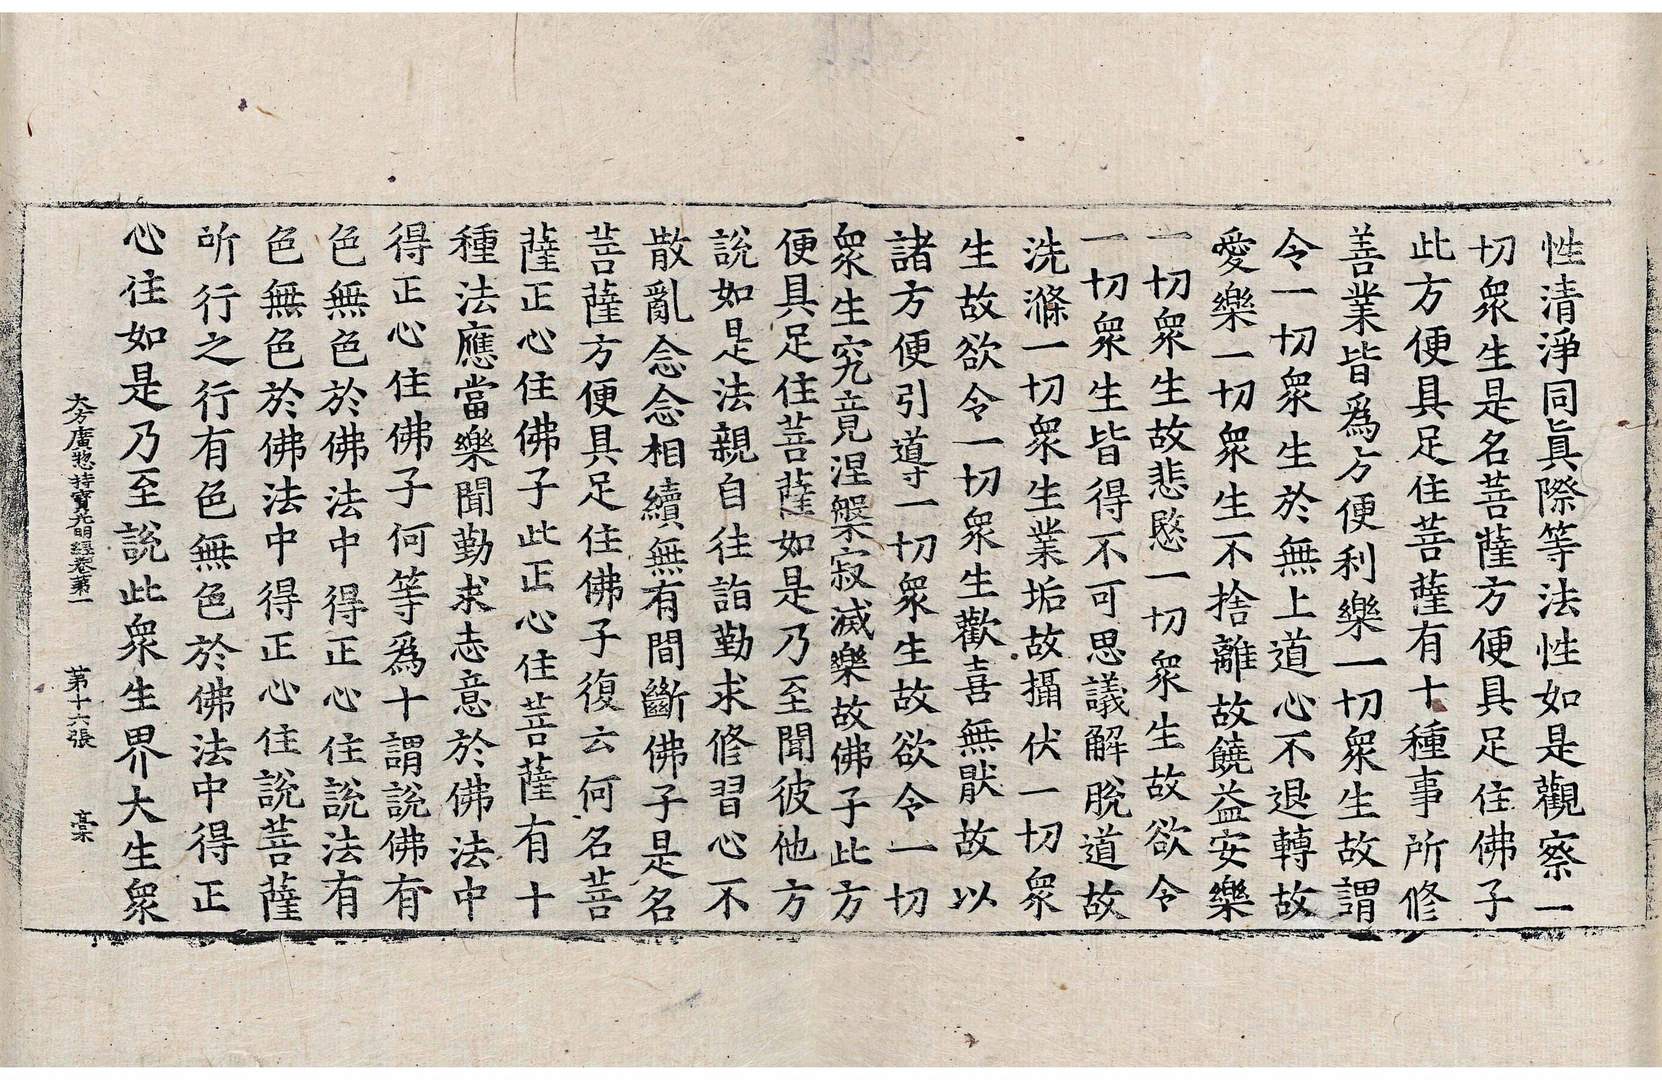 性清淨同眞際等法性如是觀察一
切衆生是名菩薩方便具足住佛子
此方便具足住菩薩有十種事所修
善業皆爲方便利樂一切衆生故謂
令一切衆生於無上道心不退轉故
愛樂一切衆生不捨離故饒益安樂
一切衆生故悲愍一切衆生故欲令
一切衆生皆得不可思議解脫道故
洗滌一切衆生業垢故攝伏一切衆
生故欲令一切衆生歡喜無猒故以
諸方便引導一切衆生故欲令一切
衆生究竟涅槃寂滅樂故佛子此方
便具足住菩薩如是乃至聞彼他方
說如是法親自往詣勤求修習心不
散亂念念相續無有間斷佛子是名
菩薩方便具足住佛子復云何名菩
薩正心住佛子此正心住菩薩有十
種法應當樂聞勤求志意於佛法中
得正心住佛子何等爲十謂說佛有
色無色於佛法中得正心住說法有
色無色於佛法中得正心住說菩薩
所行之行有色無色於佛法中得正
心住如是乃至說此衆生界大生衆
大方廣惣持寶光明經卷第一 第十六張 槀